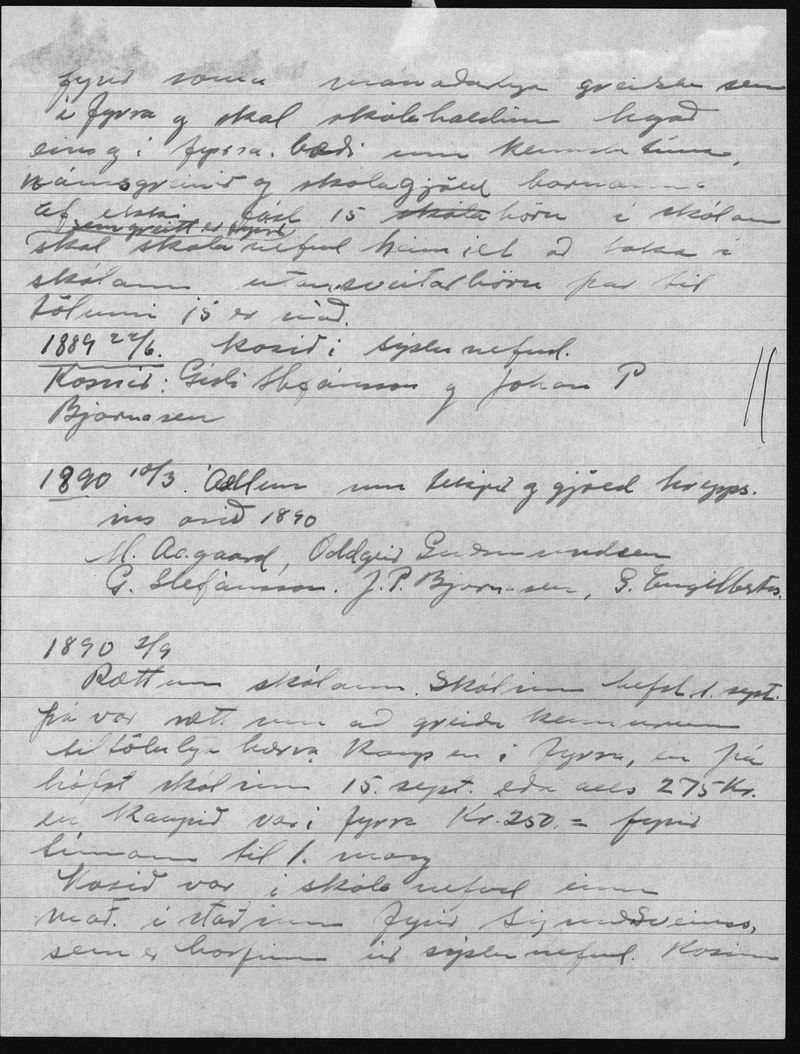 fyrir sama mánaðarlega greiðslu sem
í fyrra og skal skólahaldinu hagað
eins og í fyrra. bæði um kennslutíma,
námsgreinir og skólagjöld barnanna
ef ekki fást 15 skóla börn í skólann
sem greitt er fyrir
skal skólanefnd heimilt að taka í
skólann utansveitarbörn þar til
tölunni 15 er náð.
1889 22/6. Kosið í sýslunefnd.
Kosnir: Gísli Stefánsson og Johan P
Bjarnasen
1890 18/3. Áætlun um tekjur og gjöld hrepps-
ins árið 1890
M. Aagaard, Oddgeir Guðmundsen
G. Stefánsson. J. P. Bjarnasen, G. Engilberts.
1890 2/9
Rætt um skólann. Skólinn hefst 1. sept.
þá var rætt um að greiða kennurunum
tiltölulega hærra kaup en í fyrra, en þá
hófst skólinn 15. sept. eða alls 275 Kr.
en kaupið var í fyrra Kr. 250.= fyrir
tímann til 1. marz
Kosið var í skólanefnd einn
mað. í staðinn fyrir Sigm.
sem er horfinn úr sýslunefnd. Kosinn